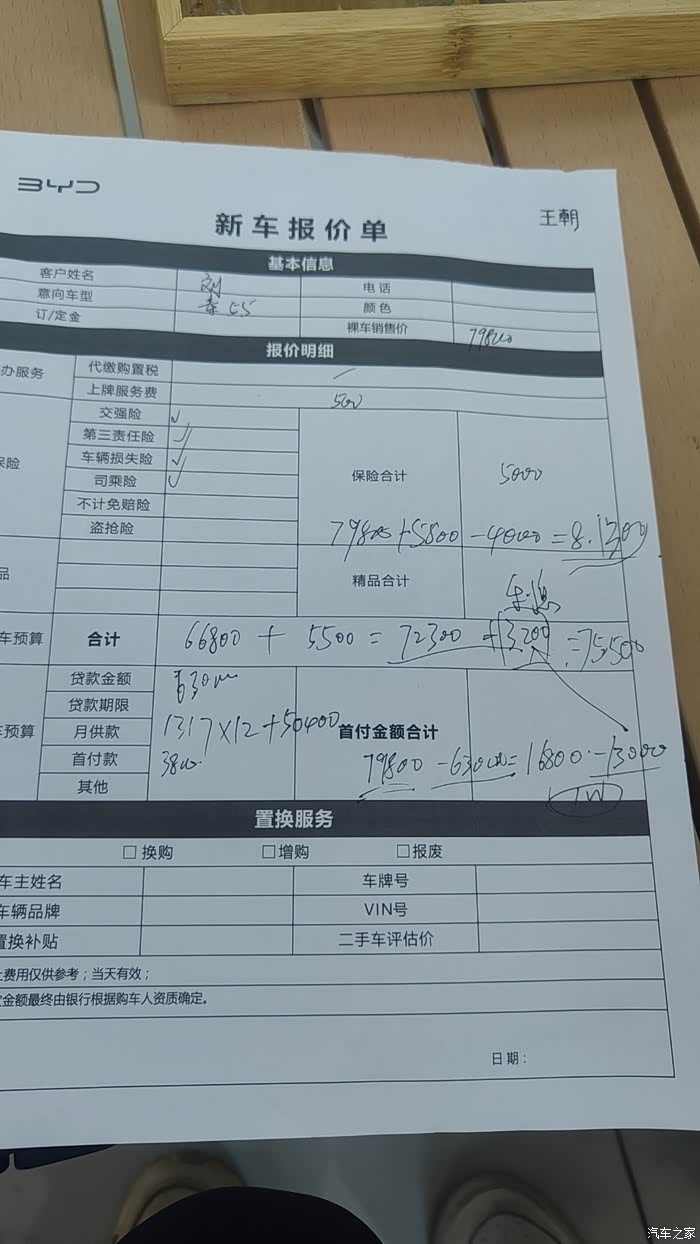 BYD
王朝
新车报价单
基本信息
客户姓名 刘 电话
意向车型 秦 L5 颜色
订/定金 裸车销售价 79800
报价明细
办服务 代缴购置税
上牌服务费 500
保险 交强险 ✓
第三责任险 ✓
车辆损失险 ✓ 保险合计 5000
司乘险 ✓
不计免赔险
盗抢险 79800+5800-4000=8.1300
品 精品合计
车预算 合计 66800 + 5500 = 72300 +3200 =75500
车预算 贷款金额 63000
贷款期限
月供款 1317×12+50400 首付金额合计
首付款 3800 79800-63000=16800-13000
其他 1W
置换服务
□ 换购 □ 增购 □ 报废
车主姓名 车牌号
车辆品牌 VIN号
置换补贴 二手车评估价
上费用仅供参考；当天有效；
款金额最终由银行根据购车人资质确定。
日期：
汽车之家